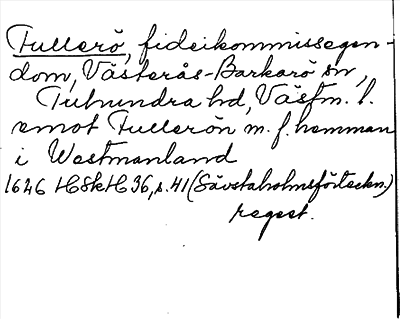 Fullerö, fideikommissegen-
dom, Västerås-Barkarö sn,
Tuhundra hd, Västm. l.
emot Fullerön m. f. hemman
i Westmanland
1626 HSkH 36, s. 41 (Sävstaholmsförteckn.)
regest.